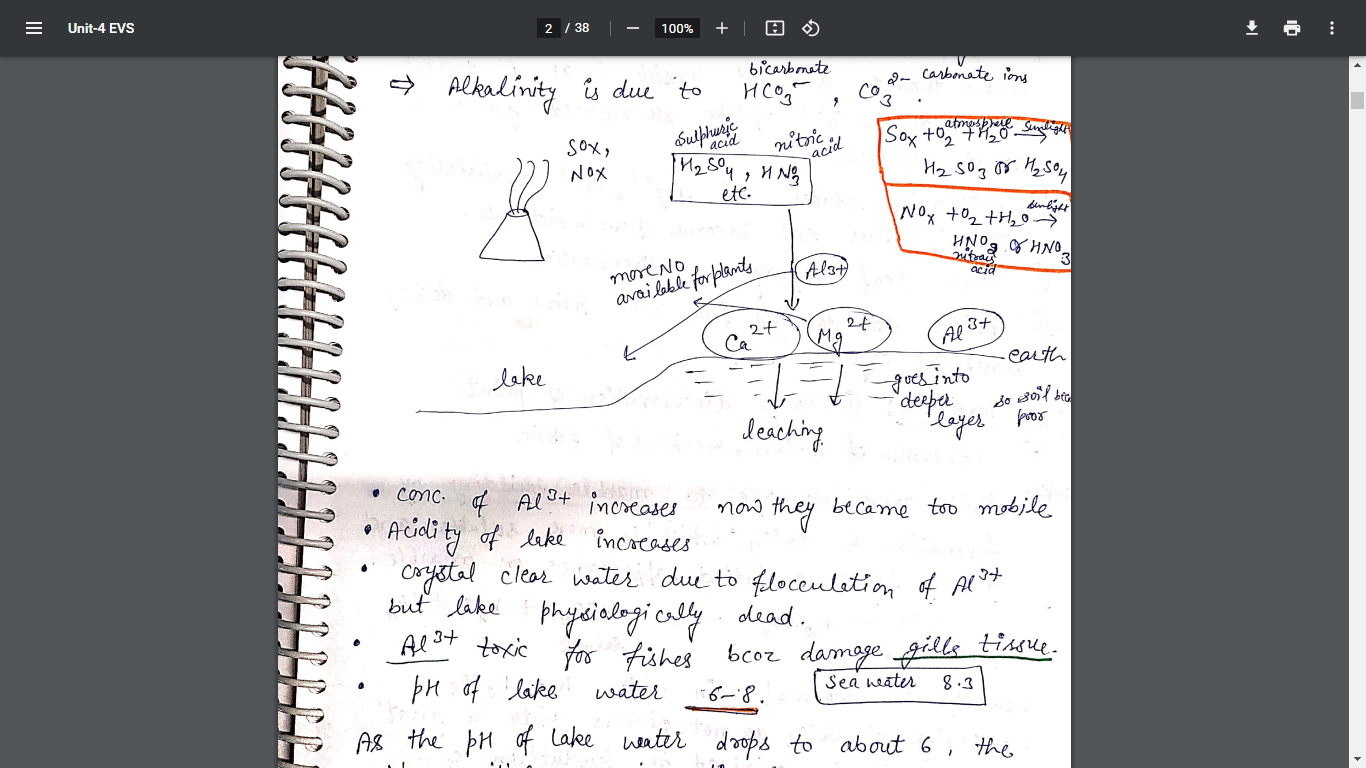 Unit-4 EVS
2 / 38
100%
bicarbonate
carbonate ions
⇒ Alkalinity is due to HCO3⁻ , CO3²⁻ .
SOx,
NOx
sulphuric acid
nitric acid
H2SO4 , HNO3
etc.
SOx + O2 + H2O → H2SO3 or H2SO4
atmosphere
sunlight
NOx + O2 + H2O →
sunlight
HNO3 or HNO3
acid
more NO
available for plants
Al3+
Ca2+
Mg2+
Al3+
earth
lake
goes into
deeper
layer
so soil bec
poor
leaching
• conc. of Al3+ increases now they became too mobile
• Acidity of lake increases
• crystal clear water due to flocculation of Al3+
but lake physiologically dead.
• Al3+ toxic for fishes bcoz damage gills tissue.
• pH of lake water 6–8.
Sea water 8.3
As the pH of lake water drops to about 6, the